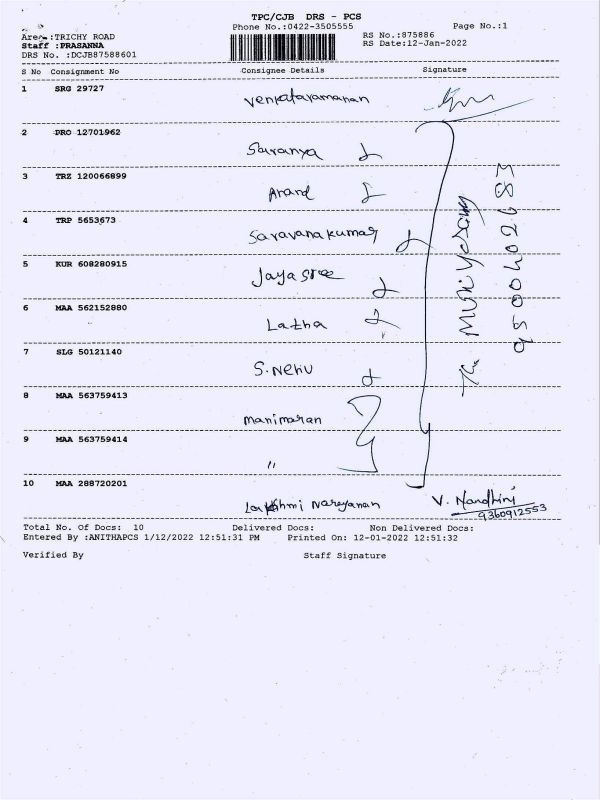 TPC/CJB DRS - PCS
Phone No.:0422-3505555 Page No.:1
Area :TRICHY ROAD RS No.:875886
Staff :PRASANNA RS Date:12-Jan-2022
DRS No. :DCJB87588601
S No Consignment No Consignee Details Signature
1 SRG 29727 Venkataramanan
2 DRO 12701962 Saranya
3 TRZ 120066899 Anand
4 TRP 5653673 Saravana kumar
5 KUR 608280915 Jayasree
6 MAA 562152880 Latha
7 SLG 50121140 S. Nehu
8 MAA 563759413 manimaran
9 MAA 563759414 "
10 MAA 288720201 Lakshmi Narayanan V. Nandhini
9360912553
Total No. Of Docs: 10 Delivered Docs: Non Delivered Docs:
Entered By :ANITHAPCS 1/12/2022 12:51:31 PM Printed On: 12-01-2022 12:51:32
Verified By Staff Signature